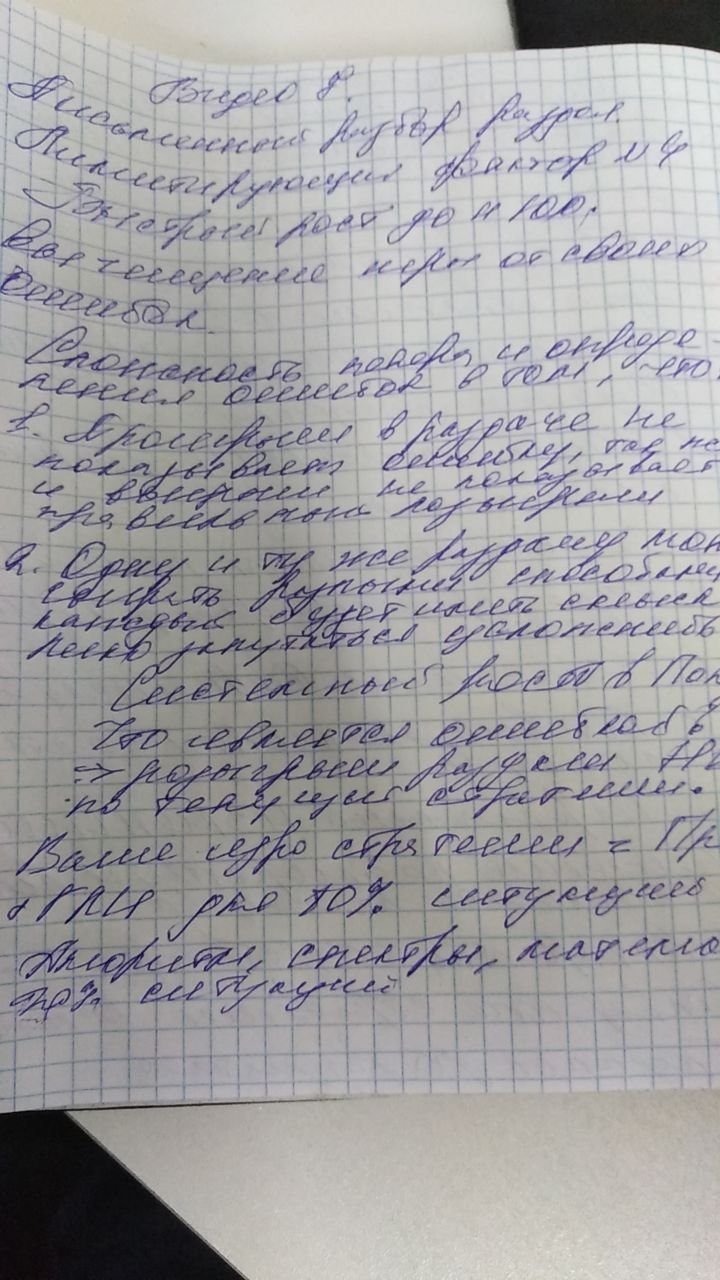 Видео 8.
Письменный разбор раздач.
Лимитирующий фактор №4
Быстрый рост до НЛ100.
Вычищение игры от своих
ошибок.
Сложность покера и опреде-
ления ошибок в том, что
1. Проигрыш в раздаче не
показывает ошибку, так же
и выигрыш не показывает
правильный розыгрыш
2. Одну и ту же раздачу мож
сыграть разными способами
каждый будет иметь смысл
легко запутаться усложнить
Системный рост в Пок
Что является ошибкой в
=> розыгрыш раздачи
по текущей стратегии.
Ваше ядро стратегии = Пр
для 70% ситуаций
Алгоритм, спектры, матема
ситуаций